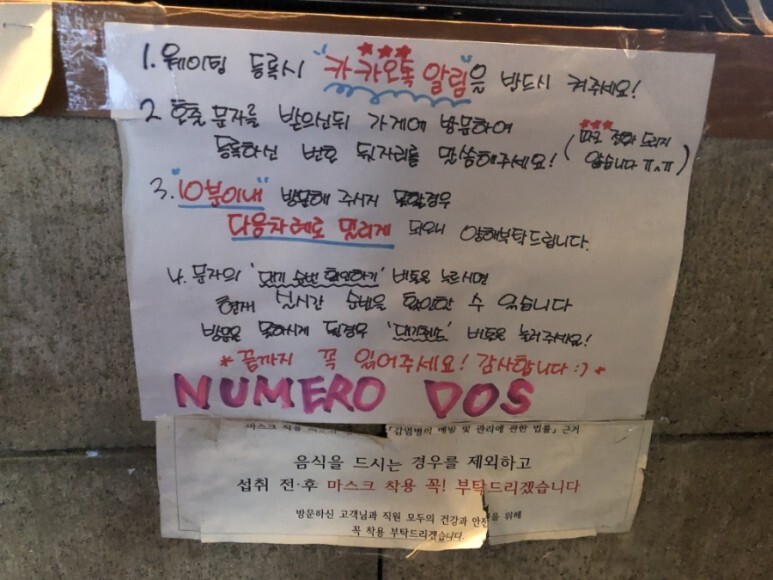 1. 웨이팅 등록시 "카카오톡 알림"을 반드시 켜주세요!
2. 호출 문자를 받으신뒤 가게에 방문하여
등록하신 번호 뒷자리를 말씀해주세요! (따로 전화 드리지 않습니다 ㅠㅅㅠ)
3. "10분이내" 방문해 주시지 못할경우
다음차례로 밀리게 되오니 양해부탁드립니다.
4. 문자의 '대기 순번 확인하기' 버튼을 누르시면
현재 실시간 순번을 확인할 수 있습니다
방문을 못하시게 될경우 '대기취소' 버튼을 눌러주세요!
*끝까지 꼭 읽어주세요! 감사합니다 :)*
NUMERO DOS
마스크 착용 「감염병의 예방 및 관리에 관한 법률」 근거
음식을 드시는 경우를 제외하고
섭취 전·후 마스크 착용 꼭! 부탁드리겠습니다
방문하신 고객님과 직원 모두의 건강과 안전을 위해
꼭 착용 부탁드리겠습니다.